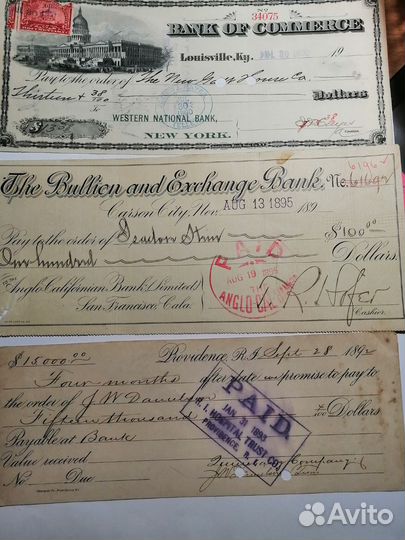 No 34075
BANK OF COMMERCE
Louisville, Ky. 19
Pay to the order of The New
Thirteen & 38/100 Dollars
To
WESTERN NATIONAL BANK,
NEW YORK.
$13.38
Cashier.
6196
The Bullion and Exchange Bank, No.
Carson City, Nev. AUG 13 1895 189
Pay to the order of $100.00
One hundred Dollars.
To
Anglo Californian Bank (Limited)
San Francisco, Cala.
PAID
AUG 19 1895
ANGLO CAL. BANK
R. Hofer
Cashier.
$15000.00 Providence R.I. Sept 28 1892
Four months after date we promise to pay to
the order of J W Danielson
Fifteen thousand /100 Dollars
Payable at Bank
Value received
No Due
PAID
JAN 31 1893
R. I. HOSPITAL TRUST CO.
PROVIDENCE, R. I.
Company
Avito